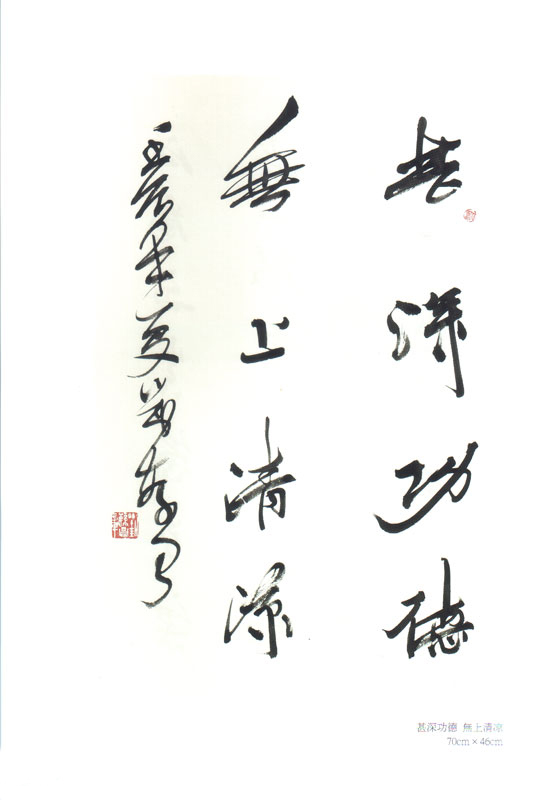 甚深功德
無上清涼
壬辰年夏
甚深功德 無上清涼
70cm × 46cm